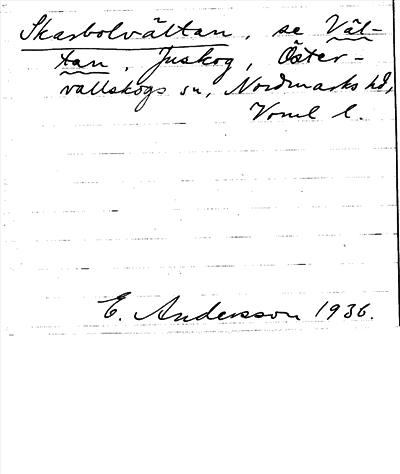 Skarbolvältan, se Väl-
tan, Juskog, Öster-
vallskogs sn, Nordmarks hd,
Vrml l.
E. Andersson 1936.